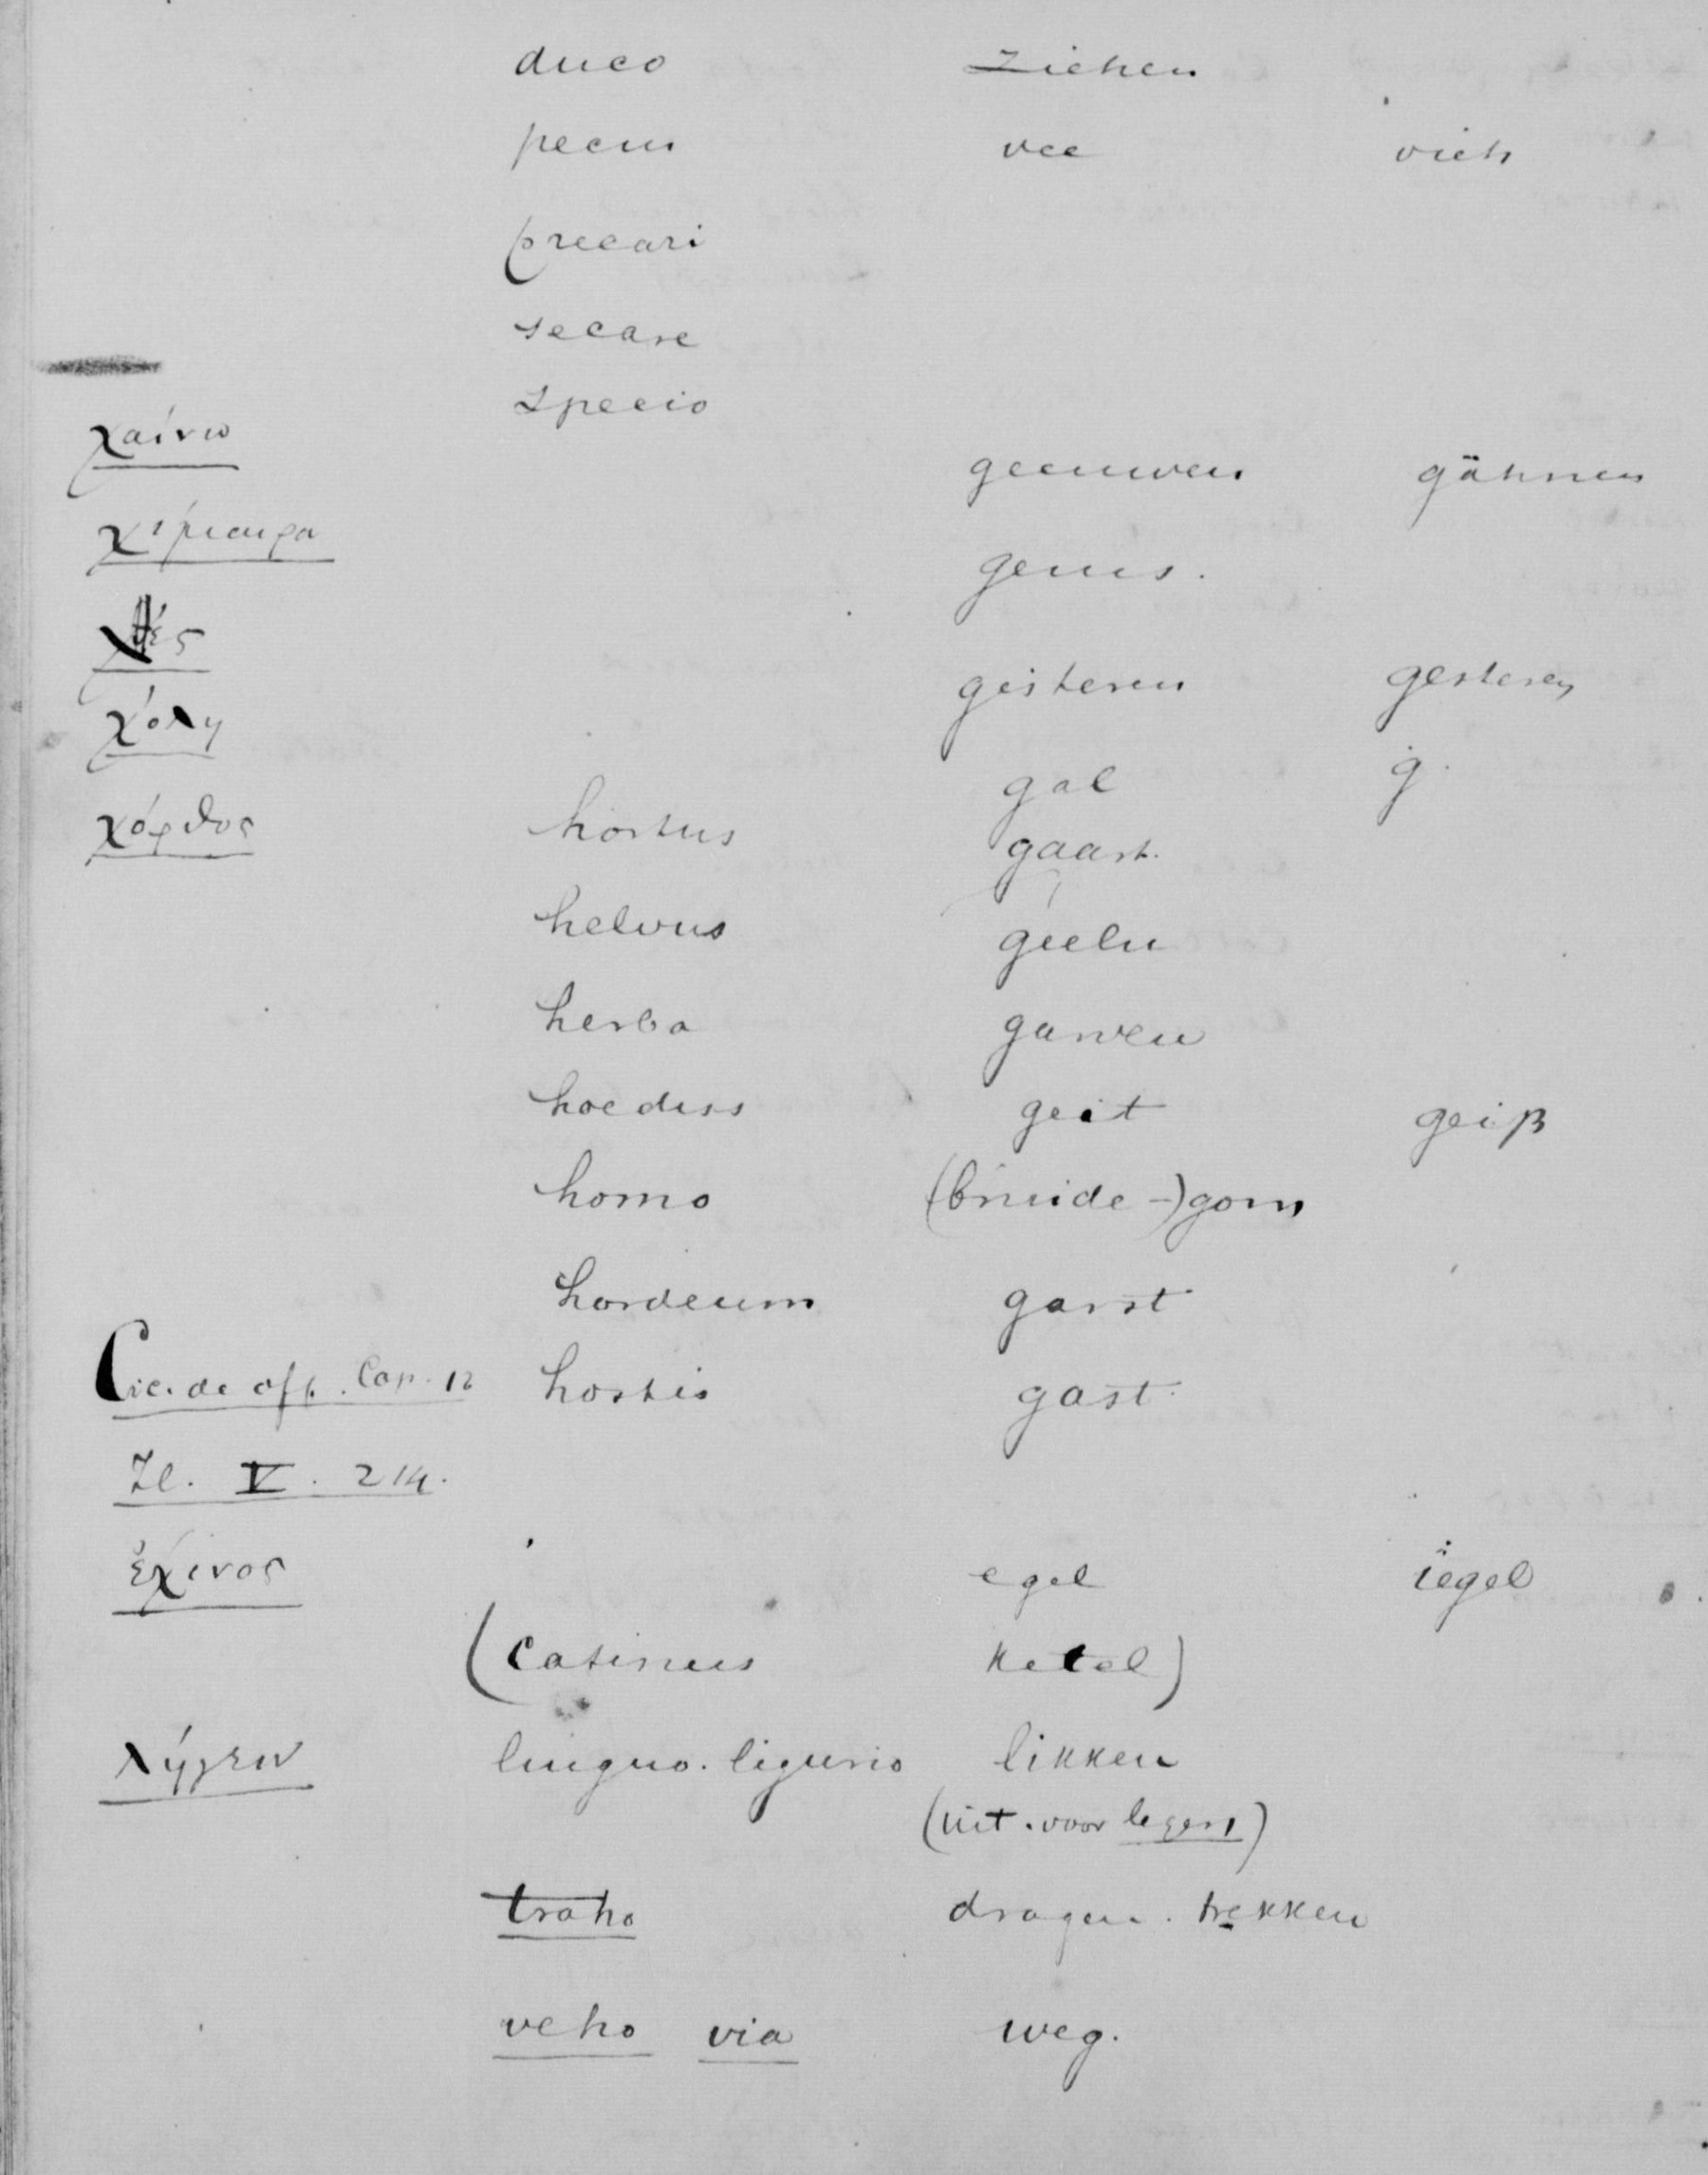 duco ziehen
pecus vee vieh
precari
secare
specio
χαίνω
geeuwen gähnen
χίμαιρα
gems.
χθές
gisteren gesteren
χόλη
gal g.
χόρθος hortus gaart.
helvus geelu
herba garven
hoedus geit geiß
homo (bruide-)gom
hordeum garst
Cic. de off. Cap. 12 hostis gast
Il. V. 214.
ἐχῖνος egel ïegel
(catinus ketel)
λήγειν linguo. ligurio likken
(uit. voor legen)
traho dragen. trekken
veho via weg.